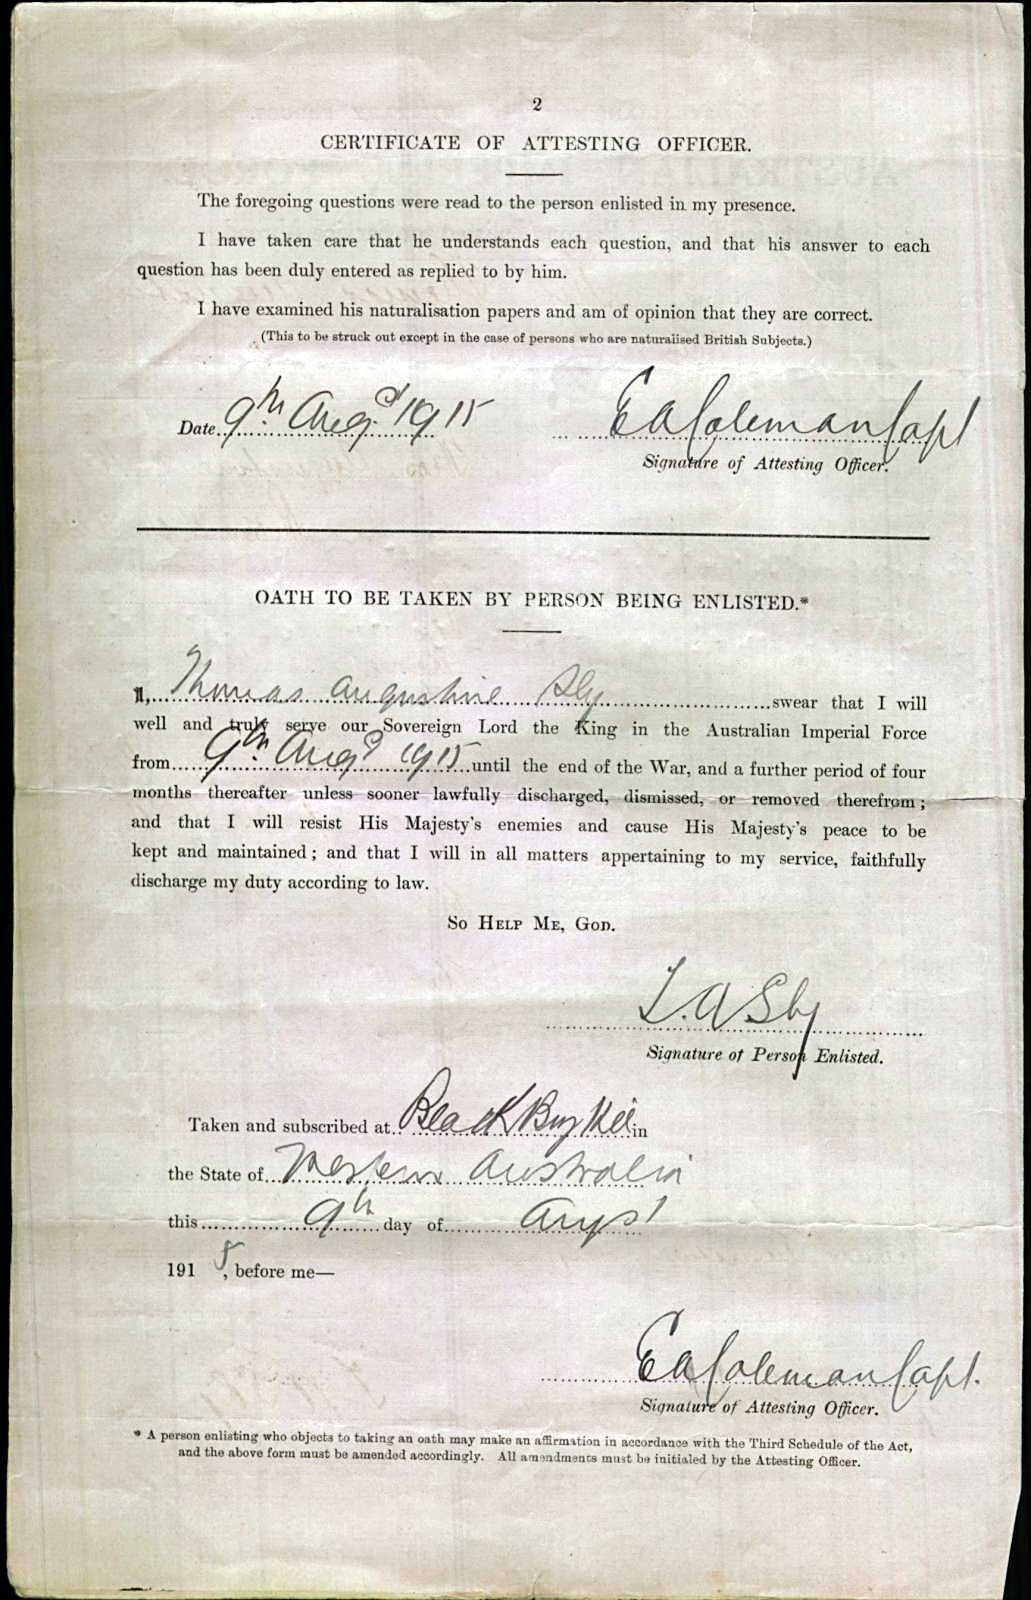 2
CERTIFICATE OF ATTESTING OFFICER.
The foregoing questions were read to the person enlisted in my presence.
I have taken care that he understands each question, and that his answer to each
question has been duly entered as replied to by him.
I have examined his naturalisation papers and am of opinion that they are correct.
(This to be struck out except in the case of persons who are naturalised British Subjects.)
Date 9th Augst 1915 EA Coleman Capt
Signature of Attesting Officer.
OATH TO BE TAKEN BY PERSON BEING ENLISTED.*
I, Thomas Augustine Sly swear that I will
well and truly serve our Sovereign Lord the King in the Australian Imperial Force
from 9th Augst 1915 until the end of the War, and a further period of four
months thereafter unless sooner lawfully discharged, dismissed, or removed therefrom;
and that I will resist His Majesty's enemies and cause His Majesty's peace to be
kept and maintained; and that I will in all matters appertaining to my service, faithfully
discharge my duty according to law.
So Help Me, God.
T. A Sly
Signature of Person Enlisted.
Taken and subscribed at Black Boy Hill in
the State of Western Australia
this 9th day of Augst
1915, before me—
EA Coleman Capt.
Signature of Attesting Officer.
* A person enlisting who objects to taking an oath may make an affirmation in accordance with the Third Schedule of the Act,
and the above form must be amended accordingly. All amendments must be initialed by the Attesting Officer.